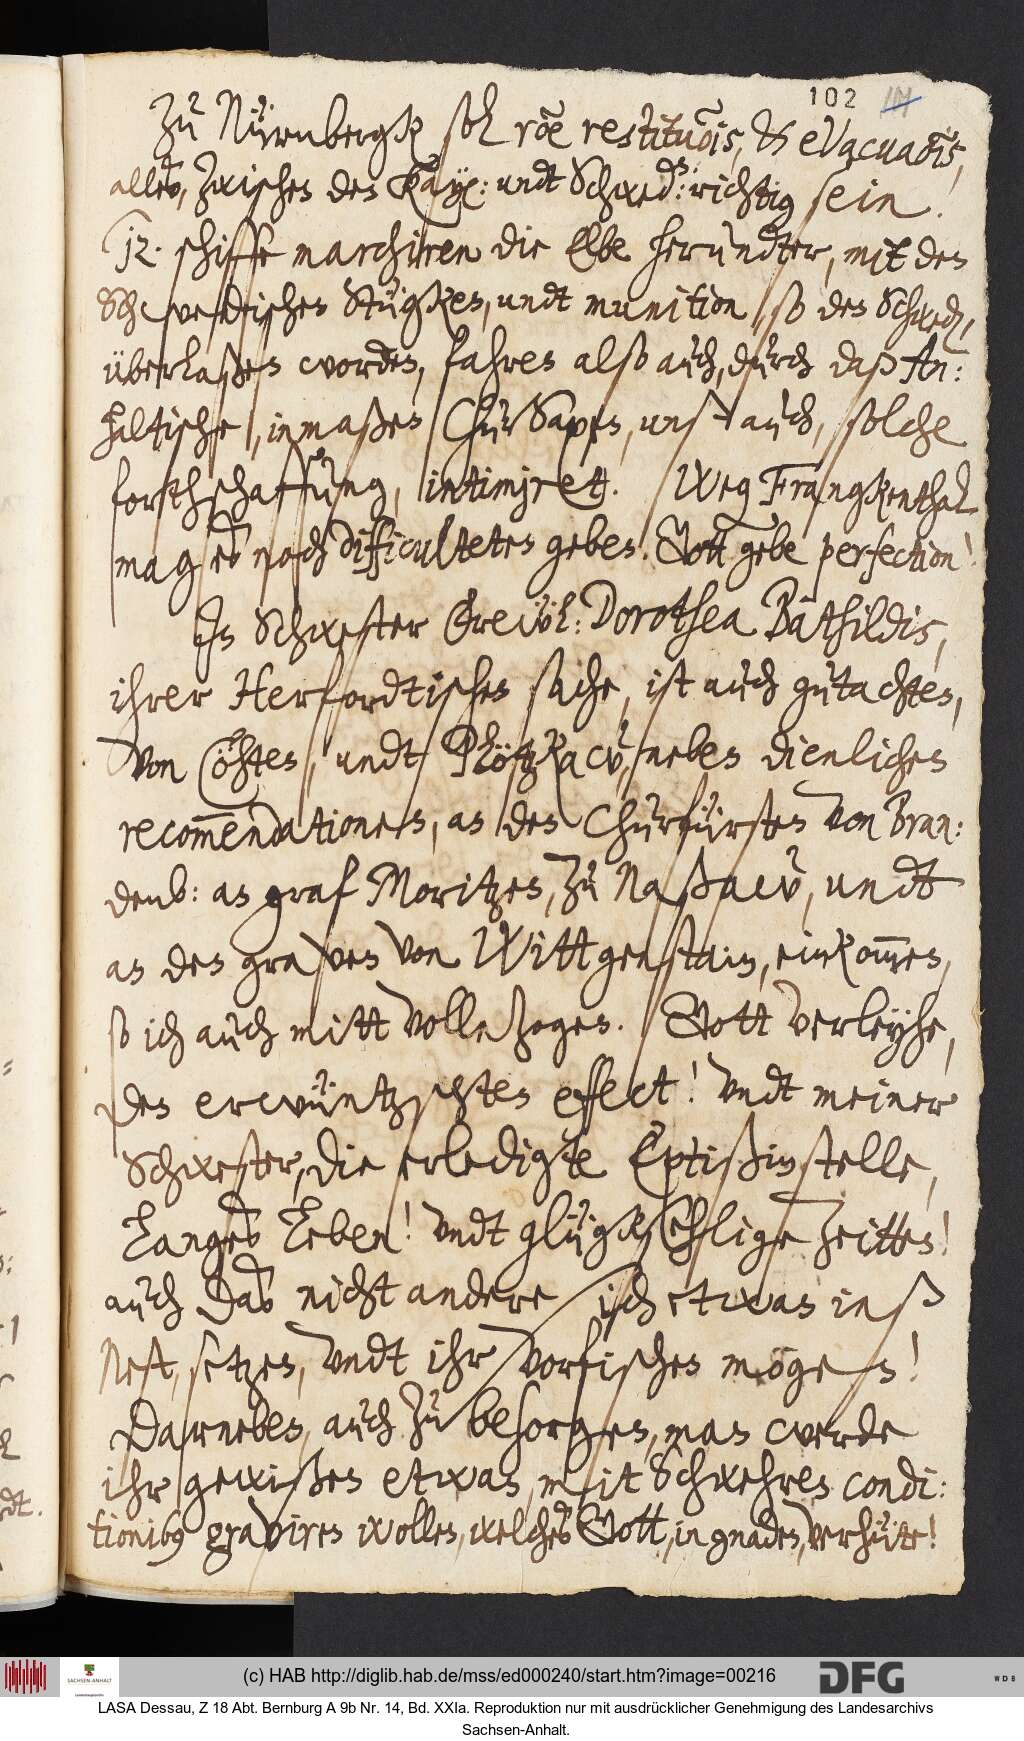 102
Zu Nürnbergk soll rõe restituõis, & evacuaõis,
alles, zwischen den Kayl: undt Schwed: richtig sein.
12. schiffe marchiren die Elbe herundter, mit den
Schwedischen Stügken, undt munition, so den Schwed,
überlaßen worden, fahren also auch, durch daß An:
haltische, inmaßen ChurSaxen, unß auch, solche
forthschaffung, intimiret. Weg Frangkenthal
mag es noch difficulteten geben. Gott gebe perfection!
In Schwester Frewl: Dorothea Bathildis,
ihrer Herfordtischen sache, ist auch gutachten,
von Cöhten, undt Plötzkaw, neben dienlichen
recom̄endationen, an den Churfürsten von Bran:
denb: an graf Moritzen, zu Naßaw, undt
an den graven von Wittgenstain, einkom̄en,
so ich auch mitt vollnzogen. Gott verleyhe,
den erwüntzschten effect! Vndt meiner
Schwester, die erledigte Eptißinstelle,
Langes Leben! Vndt glügksehlige zeitten!
auch das nicht andere sich etwas inß
Nest, setzen, Vndt ihr vorfischen mögen!
Darneben, auch zu besorgen, man werde
ihr gewißen etwas, mit Schwehren condi:
tionibus graviren wollen, welches Gott, in gnaden, verhüte!
(c) HAB http://diglib.hab.de/mss/ed000240/start.htm?image=00216
SACHSEN-ANHALT
DFG
WDB
LASA Dessau, Z 18 Abt. Bernburg A 9b Nr. 14, Bd. XXIa. Reproduktion nur mit ausdrücklicher Genehmigung des Landesarchivs
Sachsen-Anhalt.